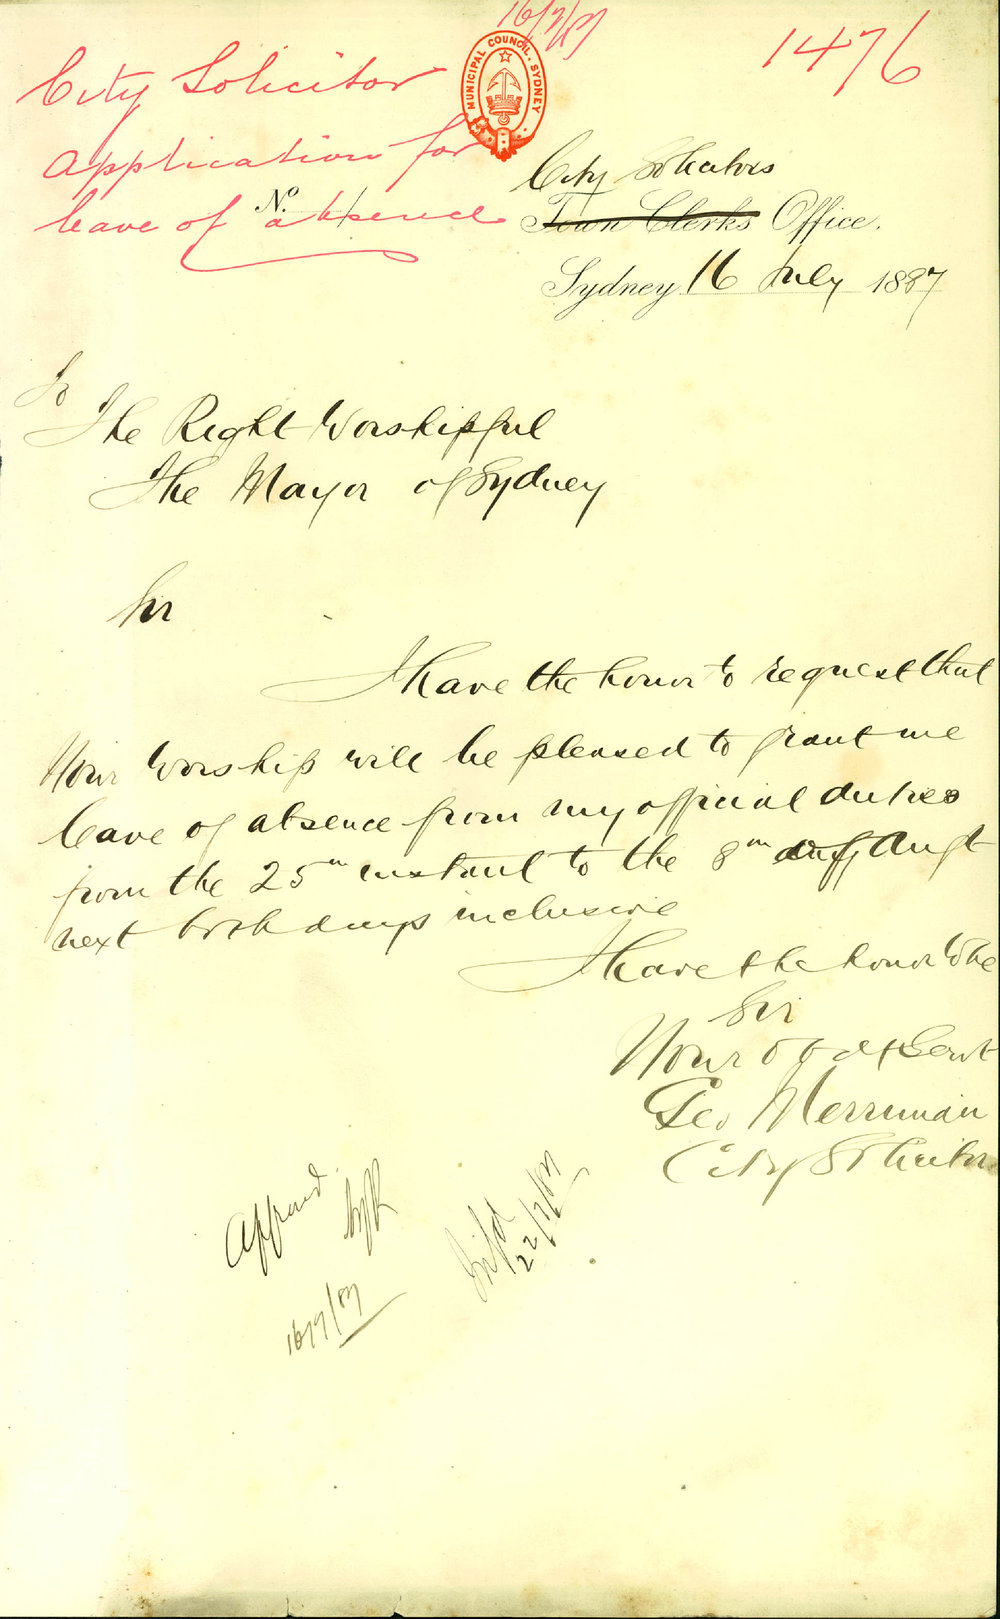 16/7/87
1476
MUNICIPAL COUNCIL. SYDNEY
City Solicitor
Application for
leave of absence
No.
City Solicitors
Town Clerks Office.
Sydney 16 July 1887
To
The Right Worshipful
The Mayor of Sydney
Sir
I have the honor to request that
Your Worship will be pleased to grant me
leave of absence from my official duties
from the 25th instant to the 8th Augt
next both days inclusive
I have the honor to be
Sir
Your obdt Servt
Geo Merriman
City Solicitor
Approved
16/7/87
22/7/87